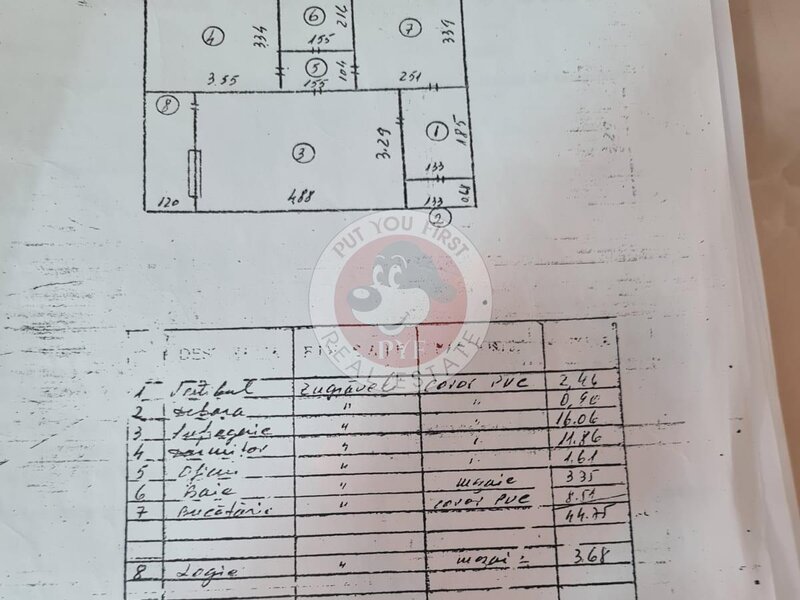 4 334 3.55
6 212 155
5 104 155
7 339 251
8 120
3 3.29 488
1 185 133
133 0.68
2
PUT YOU FIRST
PYF
REAL ESTATE
1 Vestibul Zugraveli covor PVC 2,46
2 debara " " 0,90
3 Sufragerie " " 16.06
4 Dormitor " " 11.86
5 Oficiu " 1.61
6 Baie " mozaic 3.35
7 Bucătărie " covor PVC 8.51
44.75
8 Logie " mozaic 3.68